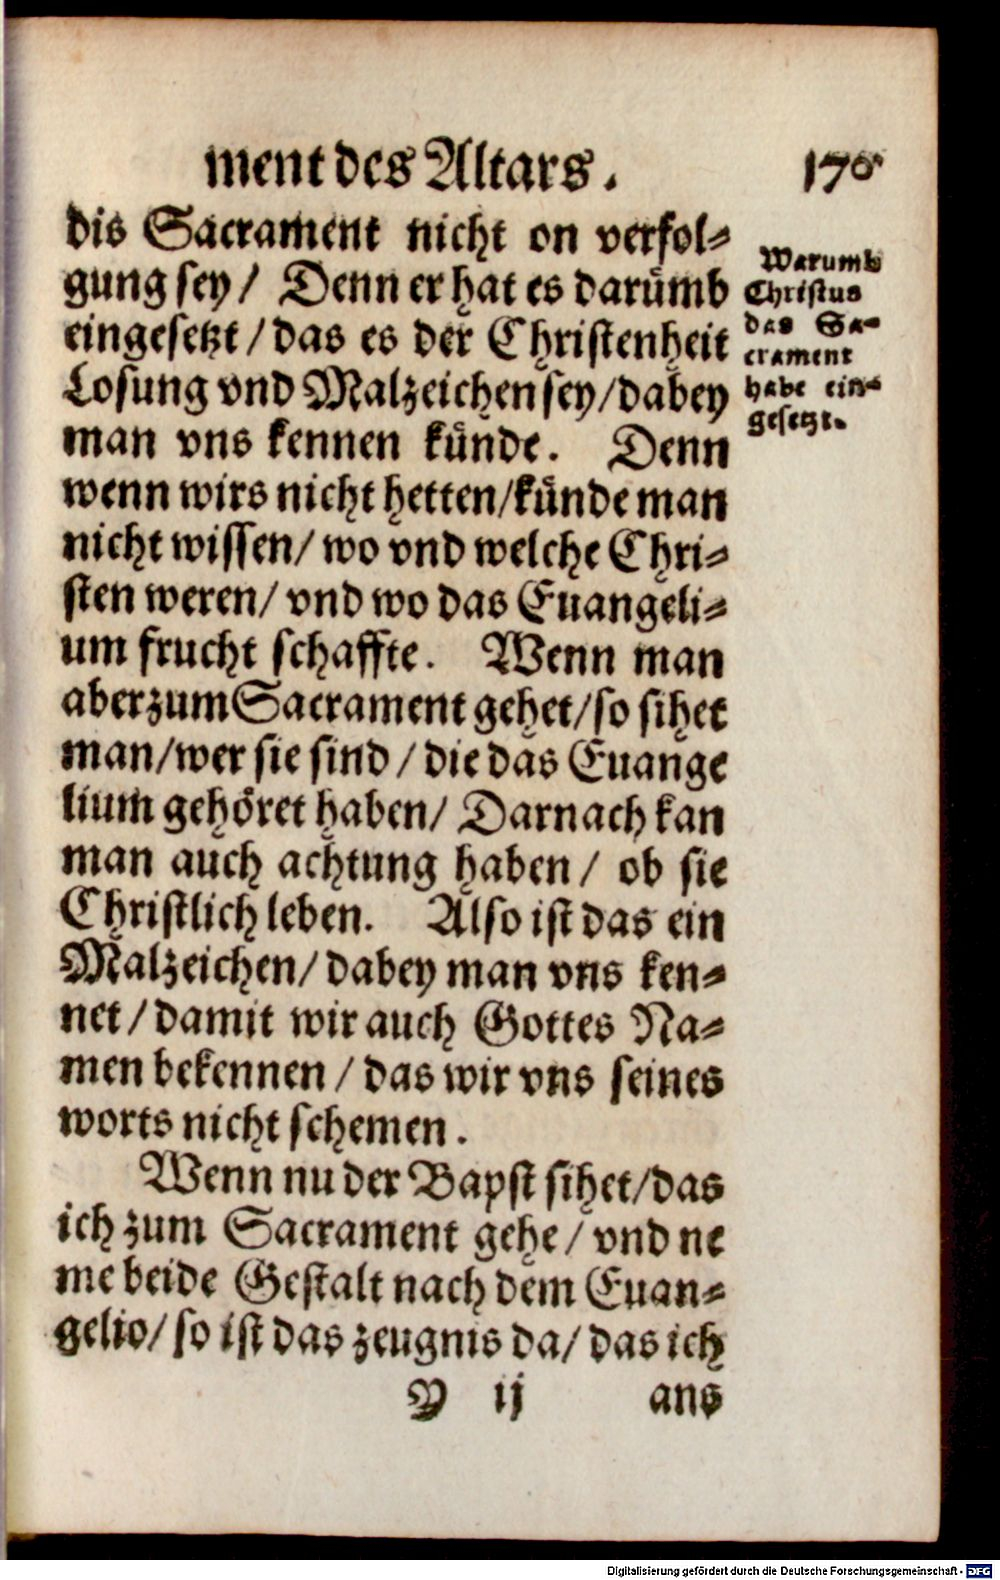 ment des Altars. 170
dis Sacrament nicht on verfol⸗
gung sey / Denn er hat es darümb
eingesetzt / das es der Christenheit
Losung vnd Malzeichen sey / dabey
man vns kennen künde. Denn
wenn wirs nicht hetten / künde man
nicht wissen / wo vnd welche Chri⸗
sten weren / vnd wo das Euangeli⸗
um frucht schaffte. Wenn man
aber zum Sacrament gehet / so sihet
man / wer sie sind / die das Euange
lium gehöret haben / Darnach kan
man auch achtung haben / ob sie
Christlich leben. Also ist das ein
Malzeichen / dabey man vns ken⸗
net / damit wir auch Gottes Na⸗
men bekennen / das wir vns seines
worts nicht schemen.
Wenn nu der Bapst sihet / das
ich zum Sacrament gehe / vnd ne
me beide Gestalt nach dem Euan⸗
gelio / so ist das zeugnis da / das ich
Y ij ans
Warumb
Christus
das Sa⸗
crament
habe ein⸗
gesetzt.
Digitalisierung gefördert durch die Deutsche Forschungsgemeinschaft - DFG